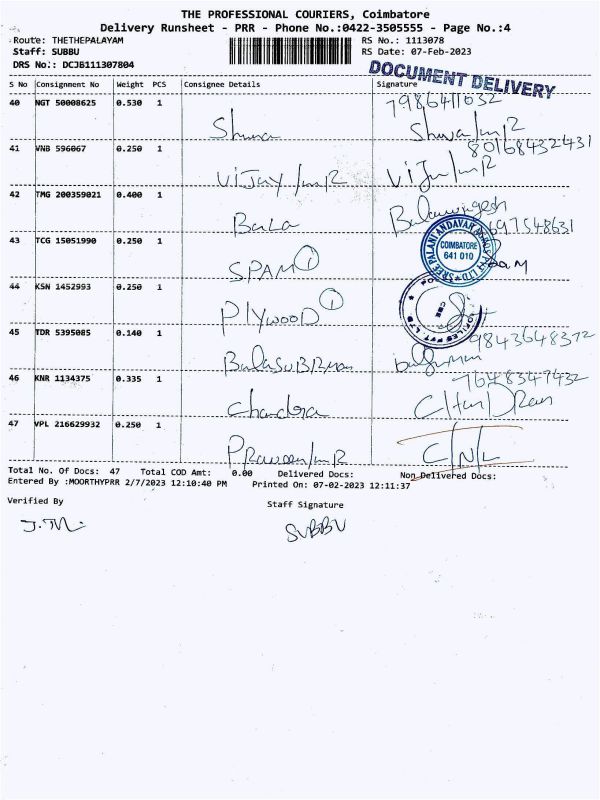 THE PROFESSIONAL COURIERS, Coimbatore
Delivery Runsheet - PRR - Phone No.:0422-3505555 - Page No.:4
Route: THETHEPALAYAM RS No.: 1113078
Staff: SUBBU RS Date: 07-Feb-2023
DRS No.: DCJB111307804
DOCUMENT DELIVERY
S No Consignment No Weight PCS Consignee Details Signature
40 NGT 50008625 0.530 1 7986411032
Shuva Shuva/mR
41 VNB 596067 0.250 1 80168432431
VIJAY/mR
42 TMG 200359021 0.400 1
BaLa
43 TCG 15051990 0.250 1
SREE PALANI ANDAVAR AGROS PVT LTD
COIMBATORE
641 010
SPAM 1
44 KSN 1452993 0.250 1
PlYwOOD 1
45 TDR 5395085 0.140 1 9843648372
46 KNR 1134375 0.335 1 7648347432
Chandra
47 VPL 216629932 0.250 1
Praveen/mR C/N/L
Total No. Of Docs: 47 Total COD Amt: 0.00 Delivered Docs: Non Delivered Docs:
Entered By :MOORTHYPRR 2/7/2023 12:10:40 PM Printed On: 07-02-2023 12:11:37
Verified By Staff Signature
SUBBU